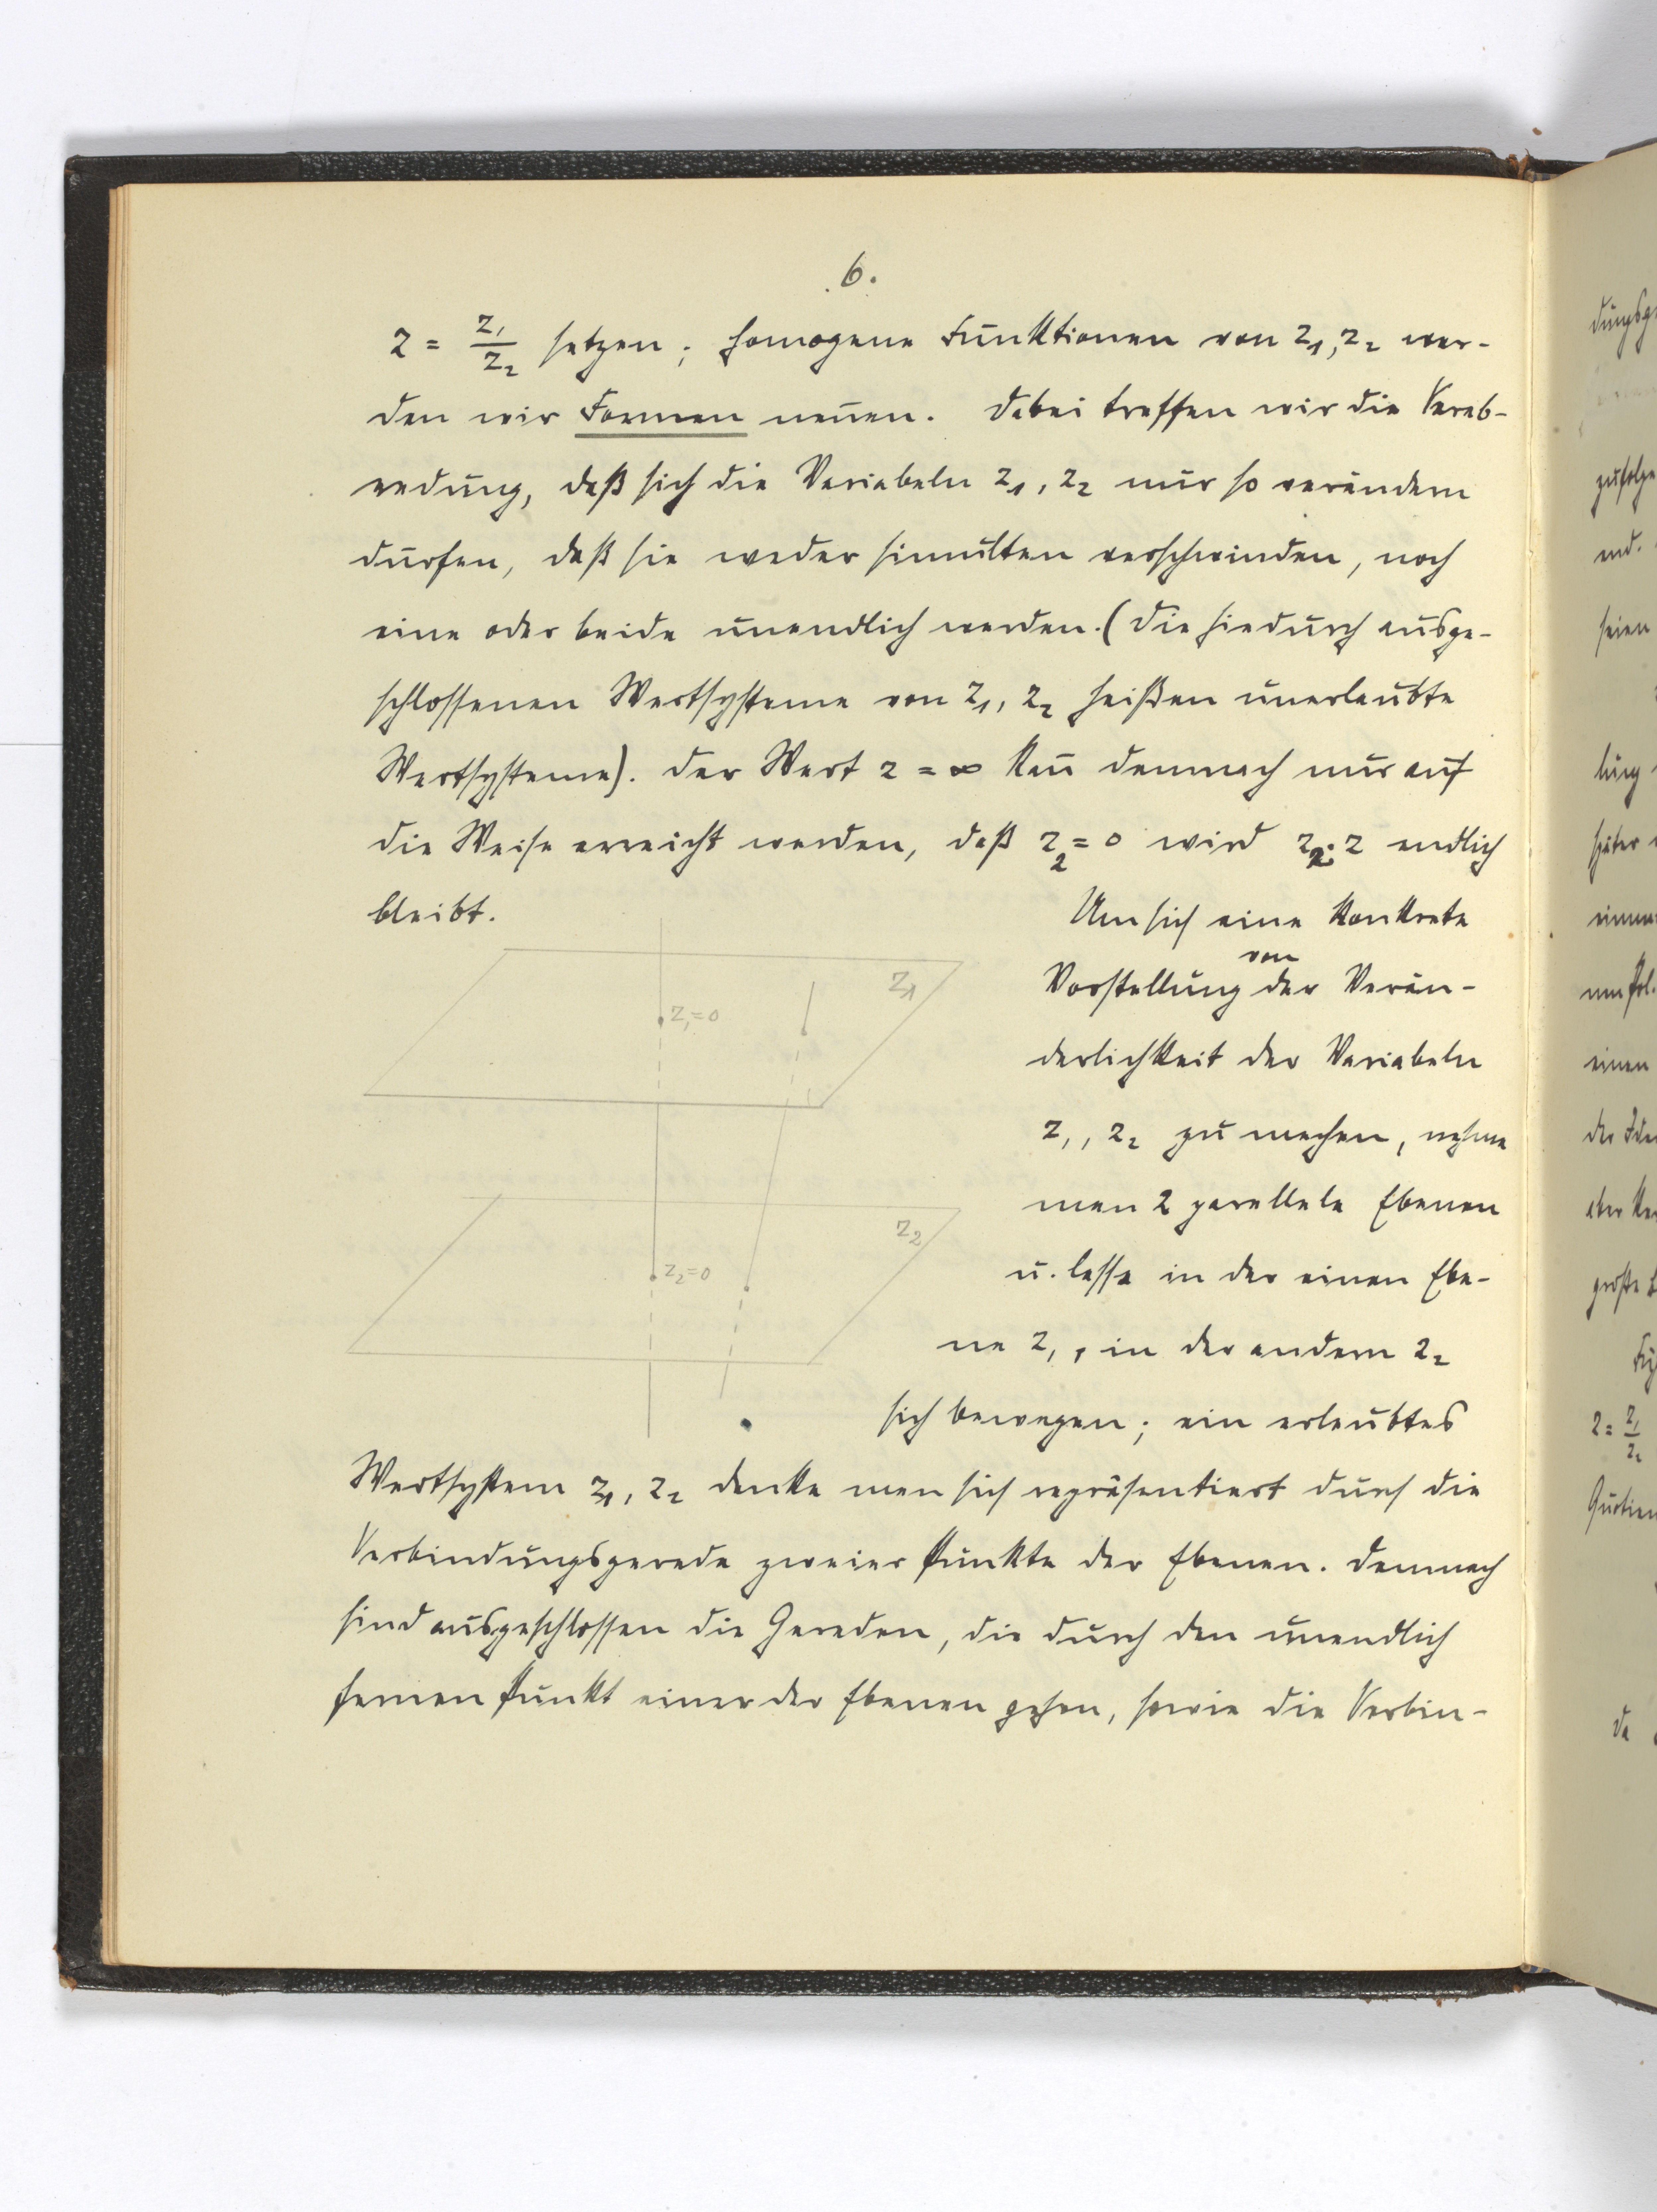 6.
z = z₁/z₂ setzen; homogene Funktionen von z₁, z₂ wer-
den wir Formen nen̄en. Dabei treffen wir die Verab-
redung, daß sich die Variabeln z₁, z₂ nur so verändern
dürfen, daß sie weder simultan verschwinden, noch
eine oder beide unendlich werden. (Die hiedurch ausge-
schlossenen Wertsysteme von z₁, z₂ heißen unerlaubte
Wertsysteme). Der Wert z = ∞ kan̄ demnach nur auf
die Weise erreicht werden, daß z₂ = 0 wird endlich
bleibt.
Um sich eine konkrete
Vorstellung von der Verän-
derlichkeit der Variabeln
z₁, z₂ zu machen, nehme
man 2 parallele Ebenen
u. lasse in der einen Ebe-
ne z₁, in der andern z₂
sich bewegen; ein erlaubtes
Z₁
z₁=0
z₂
z₂=0
Wertsystem z₁, z₂ denke man sich repräsentiert durch die
Verbindungsgerade zweier Punkte der Ebenen. Demnach
sind ausgeschlossen die Geraden, die durch den unendlich
fernen Punkt einer der Ebenen gehen, sowie die Verbin-